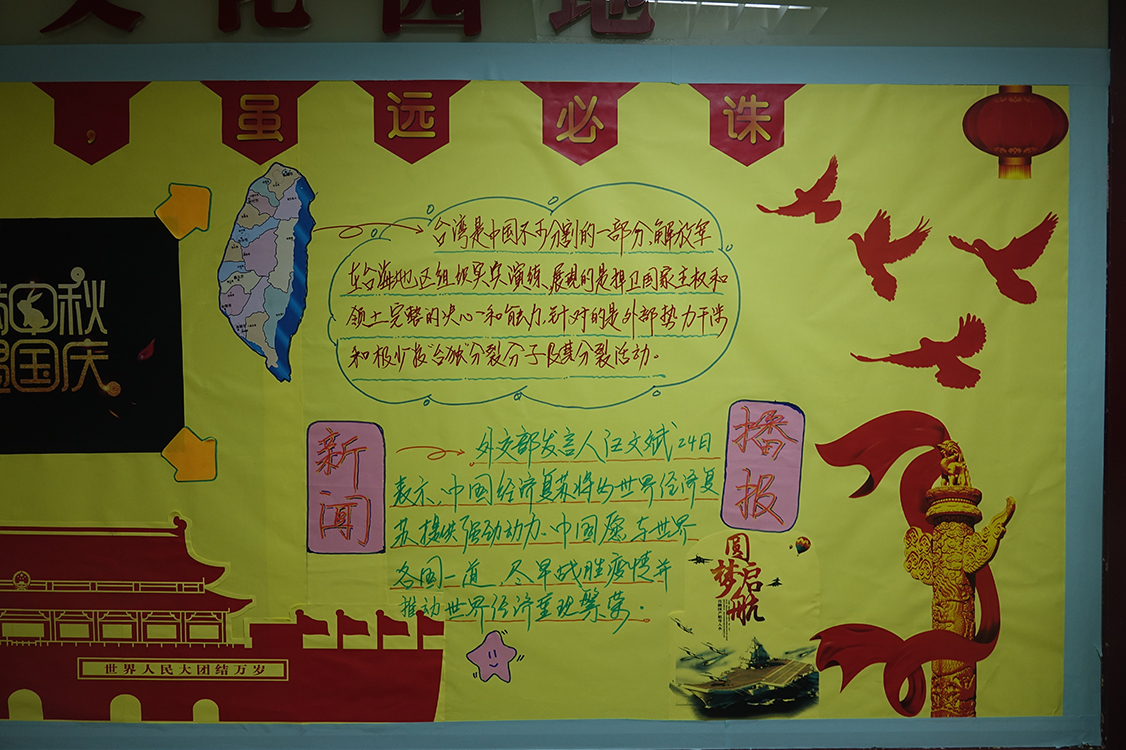 文化园地
，虽远必诛
台湾是中国不可分割的一部分、解放军
在台海地区组织实实演练、展现的是捍卫国家主权和
领土完整的决心和能力、针对的是外部势力干涉
和极少数台独分裂分子及其分裂活动.
中秋
国庆
新闻
播报
外交部发言人汪文斌24日
表示、中国经济复苏将为世界经济复
苏提供强劲动力.中国愿与世界
各国一道、尽早战胜疫情并
推动世界经济重现繁荣.
圆梦
启航
世界人民大团结万岁